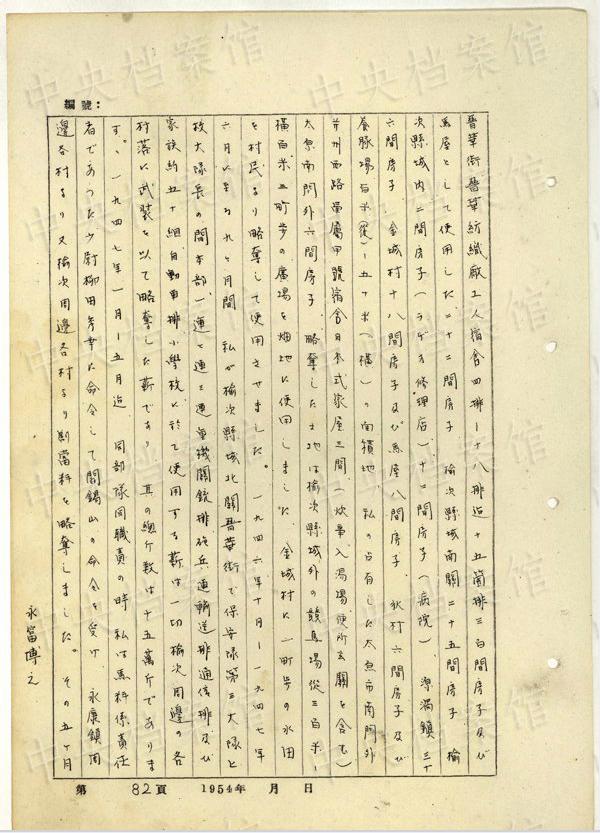 編號:
晋華街晋華紡織廠工人宿舍四排—十八排迠十五箇排三百間房子及び
馬屋として使用した二十二間房子 榆次縣城南關二十五間房子 榆
次縣城内二間房子(ラヂオ修理店)十二間房子(病院) 鎮三十
六間房子 金城村十八間房子及び馬屋八間房子 秋村六間房子及び
養豚場百米(縦)—五十米(橫)の面積地 私の占有した太原市南門外
并州西路軍屬甲號宿舍日本式家屋三間(炊事入湯場便所玄關を含む)
太原南門外六間房子 略奪した土地は榆次縣城外の競馬場從三百米—
橫百米五町歩の廣場を畑地に使用しました 金城村に一町歩の水田
を村民より略奪して使用させました。一九四六年十月—一九四七年
六月に至る九ヶ月間 私が榆次縣城北關晋華街で保安隊第三大隊と
教大隊長の間本部一連二連三連重機關銃排砲兵連輸送排通信排及び
家族約五十組自動車排小學校に於て使用する薪は一切榆次周邊の各
村落に武装を以て略奪した薪であり 其の總斤数は十五萬斤でありま
す、一九四七年一月—五月迠 同部隊同職責の時 私は馬料係責任
者であった少尉柳田 に命令して閻錫山の命令を受け、永康鎮周
邊各村より又榆次周邊各村より 料を略奪しました。その五ヶ月
永富博之
第 82頁 1954年 月 日
中央档案馆